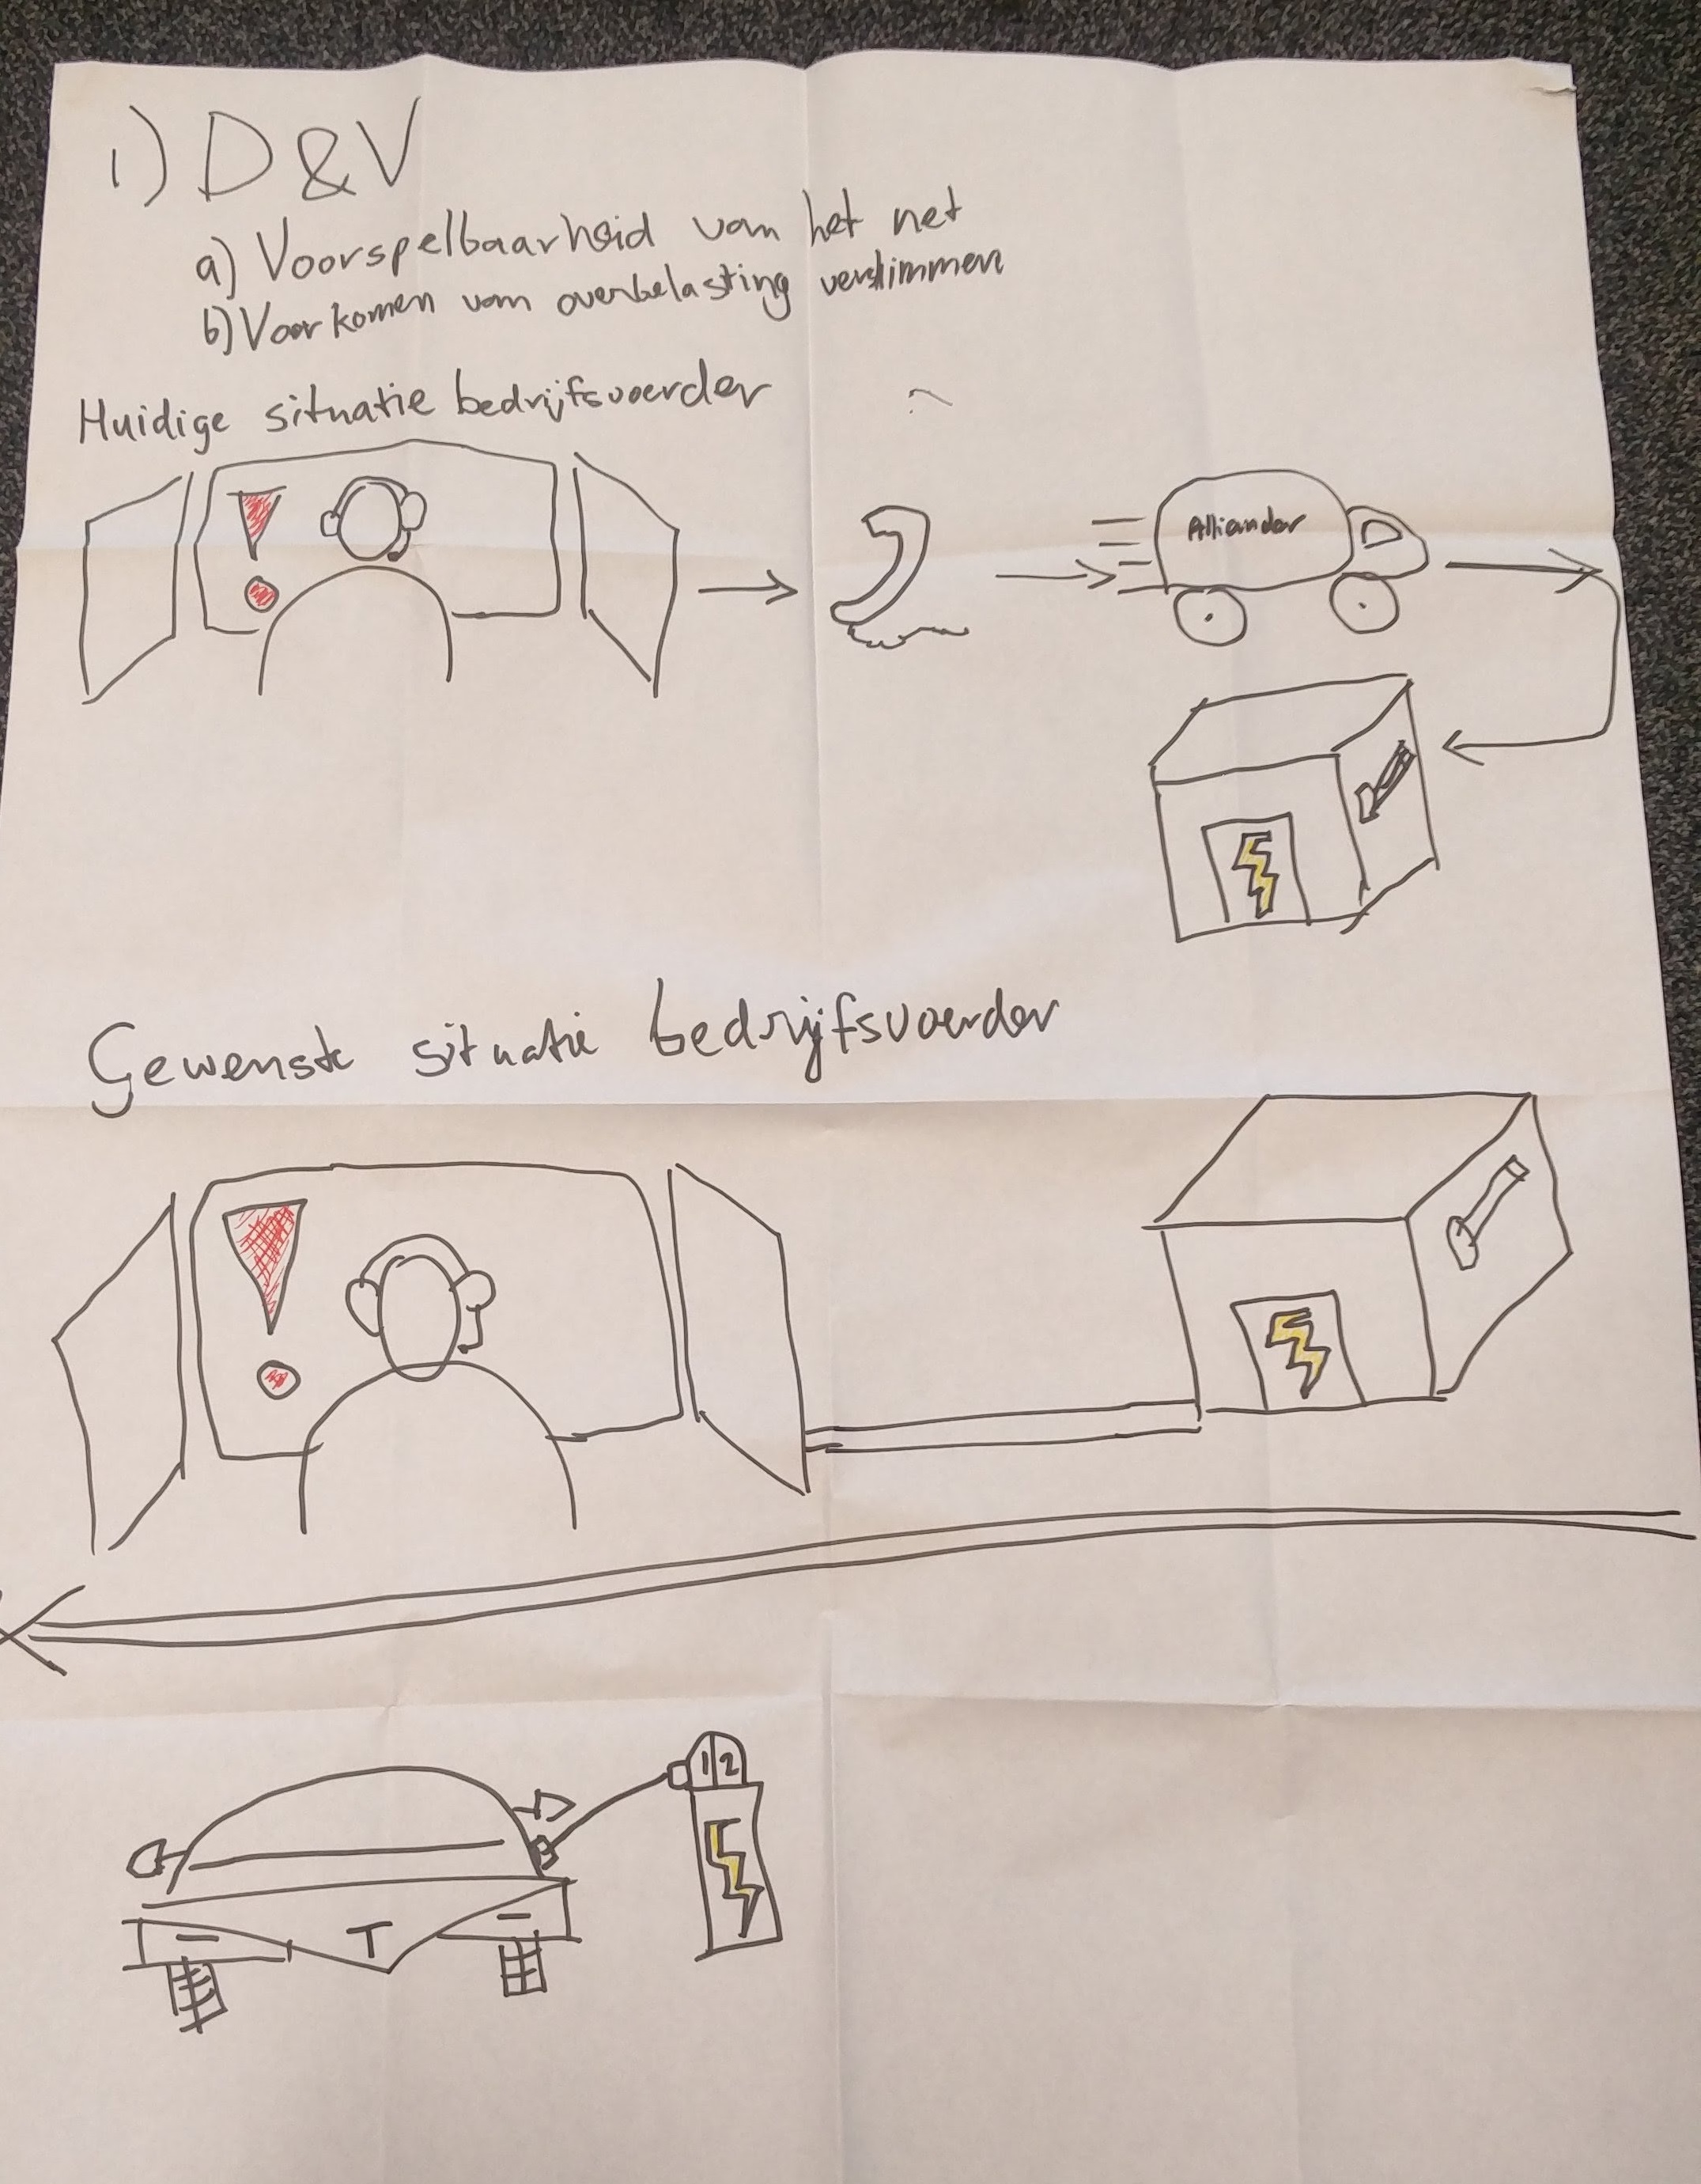 1) D&V
a) Voorspelbaarheid van het net
b) Voorkomen van overbelasting verslimmen
Huidige situatie bedrijfsvoerder
Alliander
Gewenste situatie bedrijfsvoerder
1 2
T